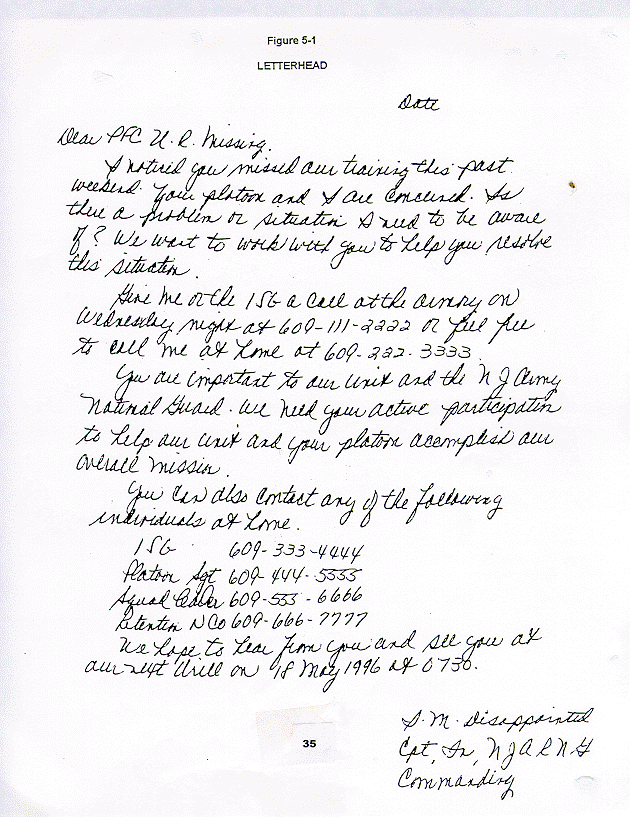 Figure 5-1
LETTERHEAD
Date
Dear PFC U. R. Missing,
I noticed you missed our training this past
weekend. Your platoon and I are concerned. Is
there a problem or situation I need to be aware
of? We want to work with you to help you resolve
this situation.
Give me or the 1SG a call at the armory on
Wednesday night at 609-111-2222 or feel free
to call me at home at 609-222-3333.
You are important to our unit and the NJ Army
National Guard. We need your active participation
to help our unit and your platoon accomplish our
overall mission.
You can also contact any of the following
individuals at home.
1SG 609-333-4444
Platoon Sgt 609-444-5555
Squad Leader 609-555-6666
Retention NCO 609-666-7777
We hope to hear from you and see you at
our next drill on 18 May 1996 at 0730.
S. M. Disappointed
Cpt, In, NJARNG
Commanding
35